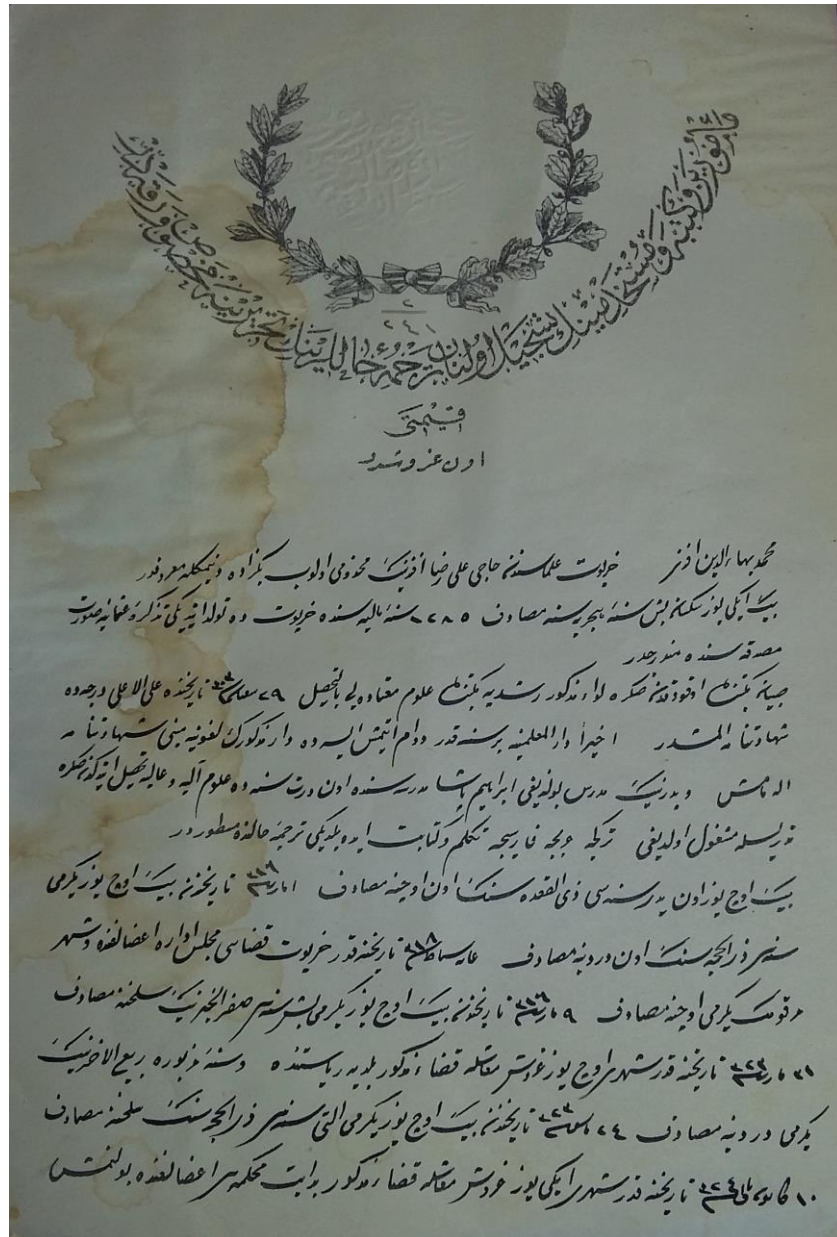 دائره‌سنجه
تسجيل اولنان ترجمهٔ حاللرينك تحريرينه مخصوص ورقه‌در
٢
٢٤١
قيمتى
اون غروشدر
محمد بهاء الدين افندى خرپوت علماسندن حاجى على رضا افندينك مخدومى اولوب بكزاده ديمكله معروفدر
بيك ايكى يوز سكسان بش سنهٔ هجريه‌سنه مصادف ١٢٨٥ سنهٔ ماليه‌سنده خرپوت ده تولد ايتديكى تذكرهٔ عثمانيه صورت
مصدقه‌سنده مندرجدر
صبيان مكتبنده اوقودقدن صكره لواء مذكور رشديه مكتبنده علوم معتاده‌يى بالتحصيل ٢٩ تاريخنده على الاعلى درجه‌ده
شهادتنامه المشدر اخيراً دار المعلمينه بر سنه قدر دوام ايتمش ايسه‌ده دار مذكورك لغويته مبنى شهادتنامه
اله‌مامش و پدرينك مدرس بولنديغى ابراهيم پاشا مدرسه‌سنده اون درت سنه‌ده علوم آليه و عاليه تحصيل ايتدكدن صكره
تدريسله مشغول اولديغى تركجه عربجه فارسيجه تكلم و كتابت ايده‌بلديكى ترجمهٔ حالنده مسطوردر
بيك اوچ يوز اون يدى سنه‌سى ذى القعده‌سنك اون اوچنه مصادف تاريخندن بيك اوچ يوز يكرمى
سنه‌سى ذى الحجه‌سنك اون دردينه مصادف تاريخنه قدر خرپوت قضاسى مجلس اداره اعضالغنده و شهر
مرقومك يكرمى اوچنه مصادف ٩ مارت تاريخندن بيك اوچ يوز يكرمى بش سنه‌سى صفر الخيرينك سلخنه مصادف
٣١ مارت ٣٢٣ تاريخنه قدر شهرى اوچ يوز غروش معاشله قضاء مذكور بلديه رياستنده و سنهٔ مزبوره ربيع الاخرينك
يكرمى دردينه مصادف ٢٤ مايس ٣٢٣ تاريخندن بيك اوچ يوز يكرمى التى سنه‌سى ذى الحجه‌سنك سلخنه مصادف
١٠ كانون ثانى ٣٢٤ تاريخنه قدر شهرى ايكى يوز غروش معاشله قضاء مذكور بدايت محكمه‌سى اعضالغنده بولنمش